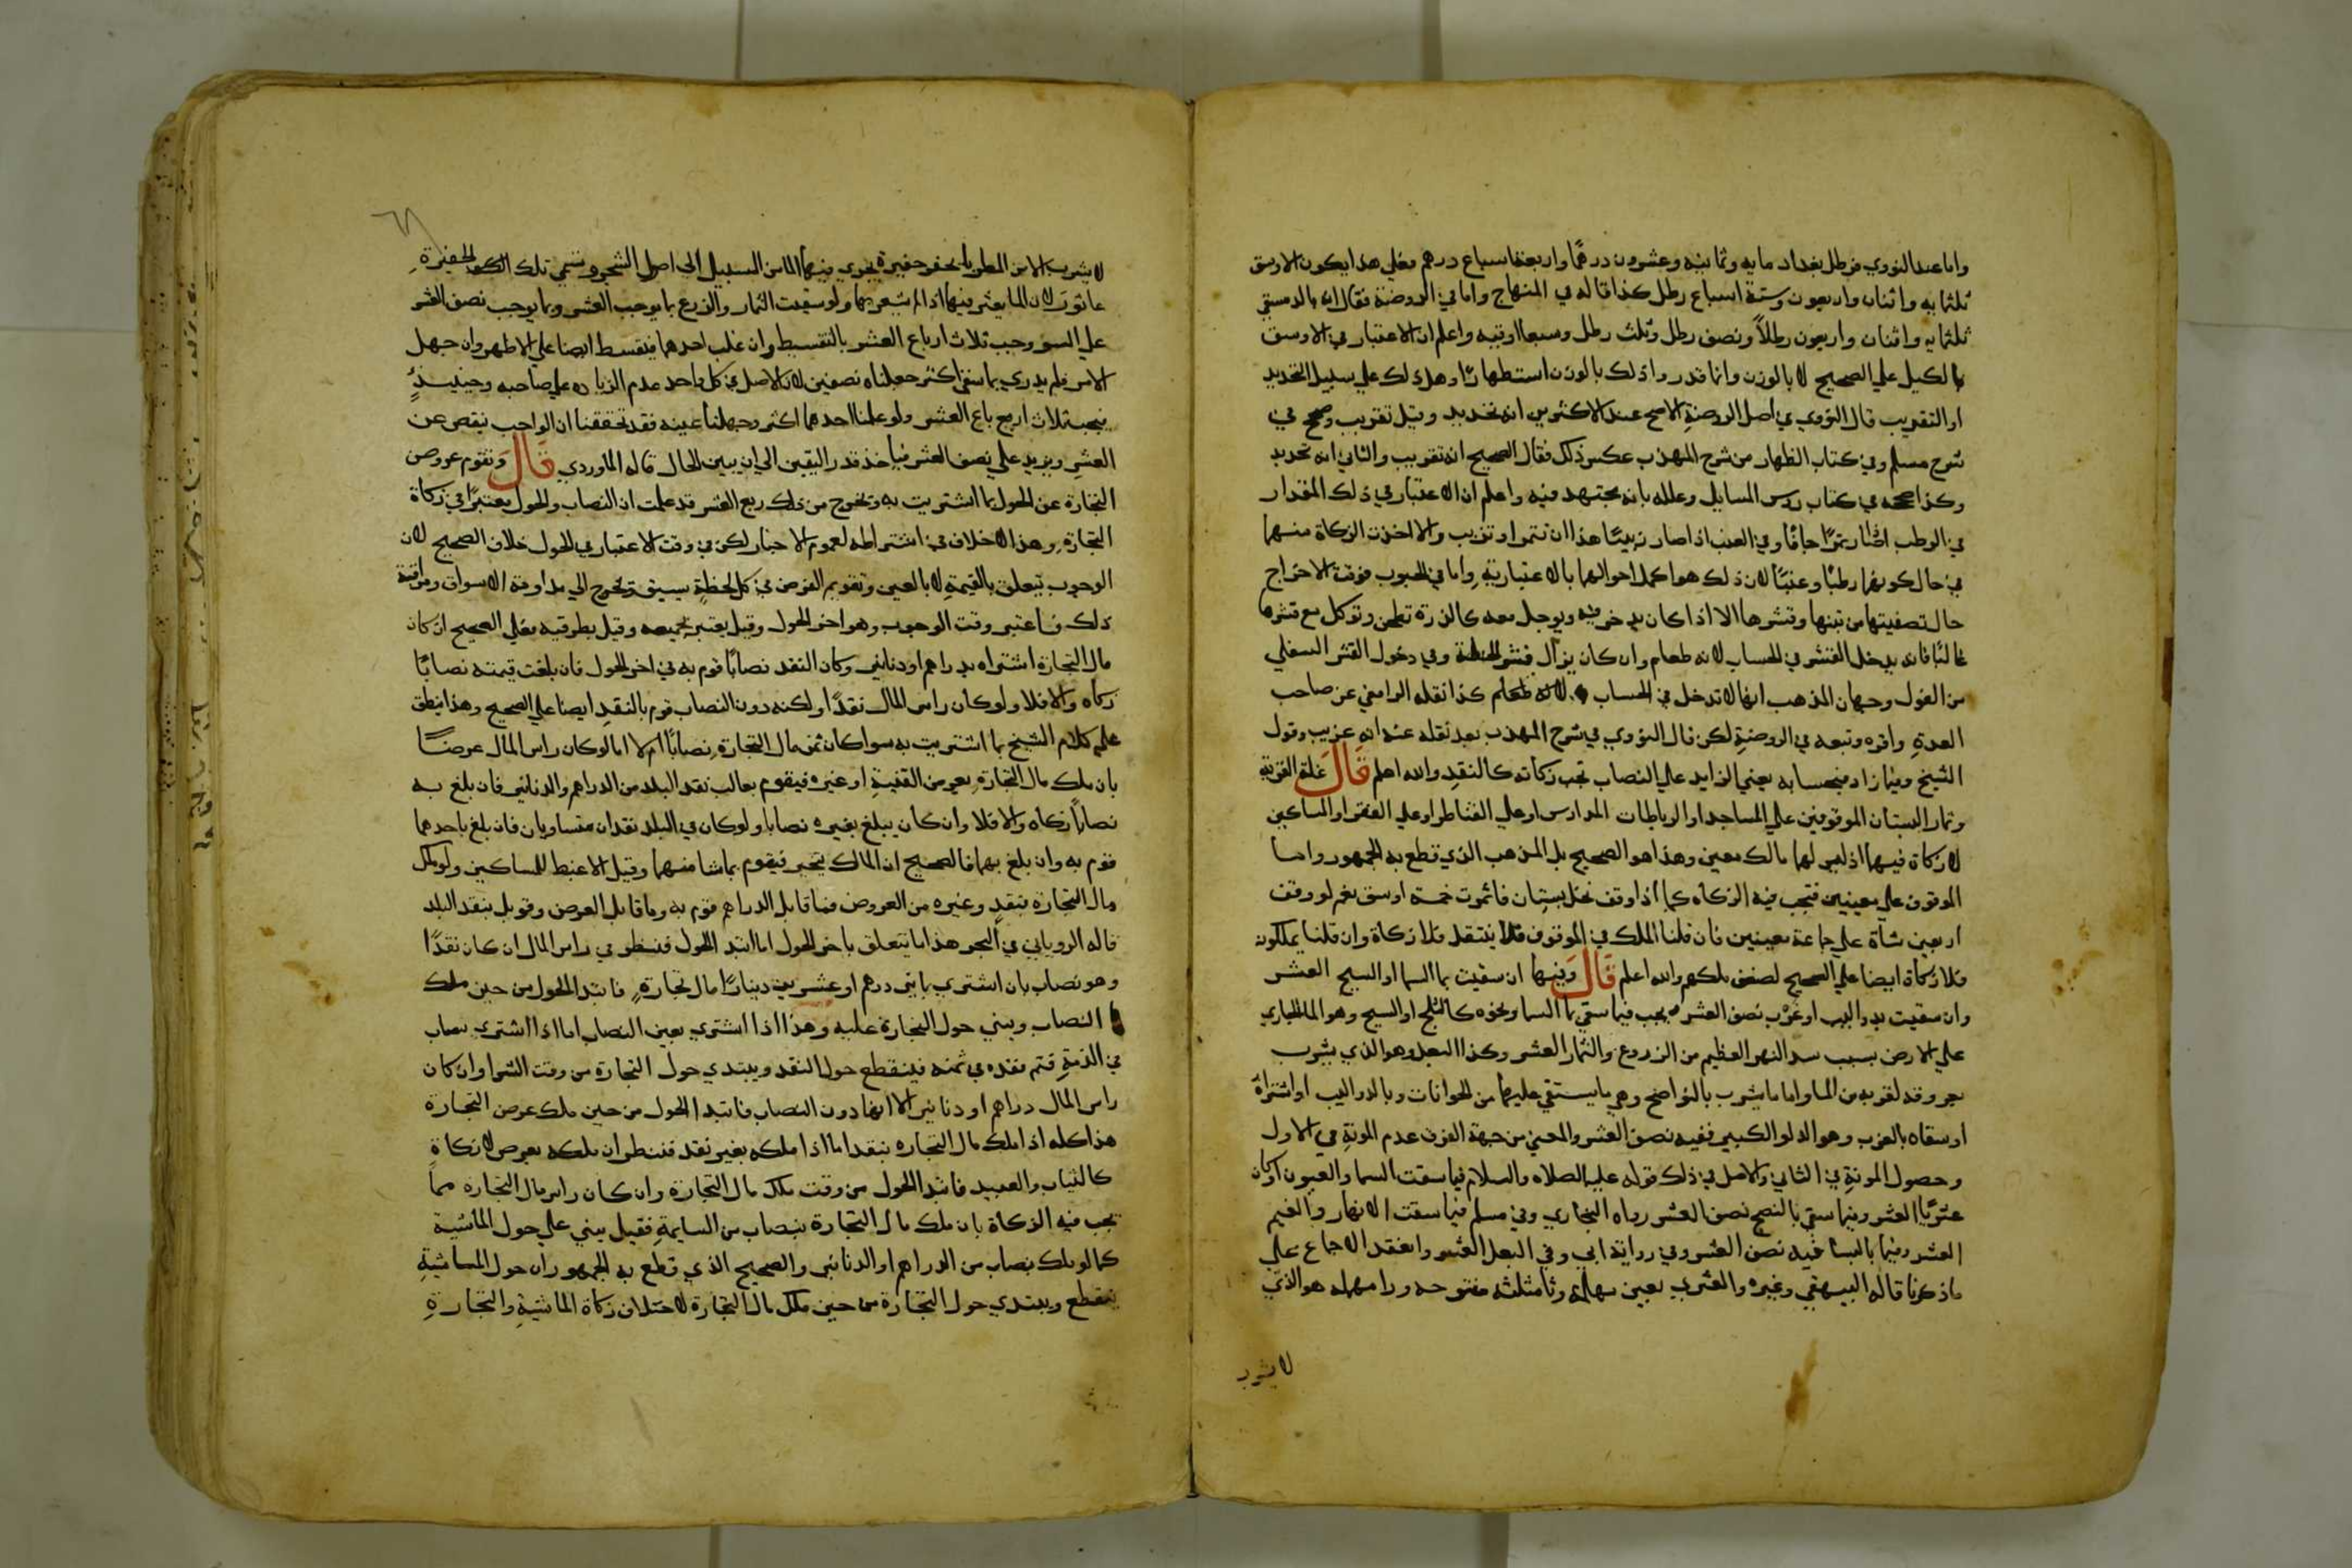 واما عند النووي فرطل بغداد مايه وثمانيه وعشرون درهمًا واربعة اسباع درهم فعلي هذا يكون الاوسق
ثلثمايه واثنان واربعون وستة اسباع رطل كذا قاله في المنهاج واما في الروضة فقال انه بالدمشقي
ثلثمايه واثنان واربعون رطلاً ونصف رطل وثلث رطل وسبعا اوقيه واعلم ان الاعتبار في الاوسق
بالكيل علي الصحيح لا بالوزن وانما قدروا ذلك بالوزن استظهارًا وهل ذلك علي سبيل التحديد
او التقريب قال النووي في اصل الروضة الاصح عند الاكثرين انه تحديد وقيل تقريب وصحح في
شرح مسلم وفي كتاب الطهاره من شرح المهذب عكس ذلك فقال الصحيح انه تقريب والثاني انه تحديد
وكذا صححه في كتاب روس المسايل وعلله بانه مجتهد فيه واعلم ان الاعتبار في ذلك المقدار
في الرطب اذا صار تمرًا جافًا وفي العنب اذا صار زبيبًا هذا ان تتمر او تزبب والا اخذت الزكاة منهما
في حال كونهما رطبًا وعنبًا لان ذلك هو اكمل احوالهما بالاعتبار وقته واما في الحبوب فوقت الاخراج
حال تصفيتها من تبنها وقشرها الا اذا كان يدخر فيه ويوجل معه كالذرة تطحن وتوكل مع قشرها
غالبًا فانه يدخل القشر في الحساب لانه طعام وان كان يزال قشر الحنطة وفي دخول القشر السفلي
من الفول وجهان المذهب انها لا تدخل في الحساب لانه طعام كذا نقله الرافعي عن صاحب
العدةِ واقره وتبعه في الروضة لكن قال النووي في شرح المهذب بعد نقله عنه انه غريب وقول
الشيخ وفيما زاد فبحسابه يعني الزايد علي النصاب تجب زكاته كالنقدِ والله اعلم قال غلة القرية
وثمار البستان الموقوفين علي المساجد او الرباطات المدارس او علي القناطر او علي الفقرا او المساكين
لا زكاة فيها اذ ليس لها مالك معين وهذا هو الصحيح بل المذهب الذي قطع به الجمهور واما
الموقوف علي معينين فتجب فيه الزكاه كما اذا وقف نخل بستان فاثمرت خمسة اوسق نعم لو وقف
اربعين شاة علي جماعة معينين فان قلنا الملك في الموقوف لا ينتقل فلا زكاة وان قلنا يملكون
فلا زكاة ايضا علي الصحيح لضعف ملكهم والله اعلم قال وفيها ان سقيت بما السما او السيح العشر
وان سقيت بدواليب او غرب نصف العشر يجب فيما سقي بما السما ونحوه كالثلج او السيح وهو الما الجاري
علي الارض بسبب سد النهر العظيم من الزروع والثمار العشر وكذا البعل وهو الذي يشرب
بعروقه لقربه من الما واما ما يشرب بالنواضح وهي ما يستقي عليها من الحيوانات وبالدواليب او اشتراه
او سقاه بالغرب وهو الدلو الكبير ففيه نصف العشر والمعني من جهة الفرق عدم المونةِ في الاول
وحصول المونةِ في الثاني والاصل في ذلك قوله عليه الصلاه والسلام فيما سقت السما والعيون او كان
عثريًا العشر وفيما سقي بالنضح نصف العشر رواه البخاري وفي مسلم فيما سقت الانهار والغيم
العشر وفيما بالسانيه نصف العشر وفي رواية ابي وفي البعل العشر وانعقد الاجماع علي
ما ذكرنا قاله البيهقي وغيره والعثري بعين مهمله وثا مثلثه مفتوحه ورا مهمله هو الذي
لا يشرب
لا يشرب الا من المطر بان يحفر حفيرة يجري فيها الما من السيل الي اصول الشجر وتسمي تلك الحفيرة
عاثورًا لان الما يعثر فيها اذا لم يشعر بها ولو سقيت الثمار والزرع بما يوجب العشر وبما يوجب نصف العشر
علي السوا وجب ثلاث ارباع العشر بالتقسيط وان غلب احدهما يتقسط ايضا علي الاظهر وان جهل
الامر فلم يدري بما سقي اكثر جعلناه نصفين لان الاصل في كل واحد عدم الزياده علي صاحبه وحينيذٍ
فيجب ثلاث ارباع العشر ولو علمنا احدهما اكثر وجهلنا عينه فقد تحققنا ان الواجب ينقص عن
العشرِ ويزيد علي نصف العشر فياخذ قدر اليقين الي ان يبين الحال قاله الماوردي قال وتقوم عروض
التجارة عند الحول بما اشتريت به وتخرج من ذلك ربع العشر قد علمت ان النصاب والحول يعتبرا في زكاة
التجارة وهذا لا خلاف في اشتراطه لعموم الاخبار لكن في وقت الاعتبار في الحول خلاف الصحيح لان
الوجوب يتعلق بالقيمةِ لا بالعين وتقويم العرض في كل لحظةٍ يشق وتخرج الي مداومة الاسواق ومراقبة
ذلك فاعتبر وقت الوجوب وهو اخر الحول وقيل يعتبر بجميعه وقيل بطرفيه فعلي الصحيح ان كان
مال التجارة اشتراه بدراهم او دنانير وكان النقد نصابًا قوم به في اخر الحول فان بلغت قيمته نصابًا
زكاه والا فلا ولو كان راس المال نقدًا ولكنه دون النصاب قوم بالنقدِ ايضا علي الصحيح وهذا ينطق
عليه كلام الشيخ بما اشتريت به سوا كان ثمن مال التجارةِ نصابًا ام لا اما لو كان راس المال عرضًا
بان ملك مال التجارةِ بعرض من القنيةِ او غيره فيقوم بغالب نقد البلد من الدراهم والدنانير فان بلغ به
نصابًا زكاه والا فلا وان كان يبلغ بغيره نصابا ولو كان في البلد نقدان متساويان فان بلغ باحدهما
قوم به وان بلغ بهما فالصحيح ان المالك يتخير فيقوم بما شا منهما وقيل الاغبط للمساكين ولو ملك
مال التجارة بنقدٍ وغيره من العروض فما قابل الدراهم قوم به وما قابل العرض وقوبل بنقد البلد
قاله الروياني في البحر هذا ما يتعلق باخر الحول اما ابتدا الحول فننظر في راس المال ان كان نقدًا
وهو نصاب بان اشتري بمايتي درهم او عشرين دينارًا مال تجارةٍ فابتدا الحول من حين ملك
النصاب ويبني حول التجارة عليه وهذا اذا اشتري بعين النصاب اما اذا اشتري بنصاب
في الذمةِ فتم نقده في ثمنه فينقطع حول النقد ويبتدي حول التجارة من وقت الشرا وان كان
راس المال دراهم او دنانير الا انها دون النصاب فابتدا الحول من حين ملك عرض التجارة
هذا كله اذا ملك مال التجاره بنقد اما اذا ملكه بغير نقد فننظر ان ملكه بعرض لا زكاة
كالثياب والعبيد فابتدا الحول من وقت ملك مال التجارة وان كان راس مال التجاره مما
تجب فيه الزكاة بان ملك مال التجارة بنصاب من السايمةِ فقيل يبني علي حول الماشية
كما لو ملك بنصاب من الدراهم او الدنانير والصحيح الذي قطع به الجمهور ان حول الماشيةِ
ينقطع ويبتدي حول التجارة من حين ملك مال التجارة لاختلاف زكاة الماشيةِ والتجارةِ